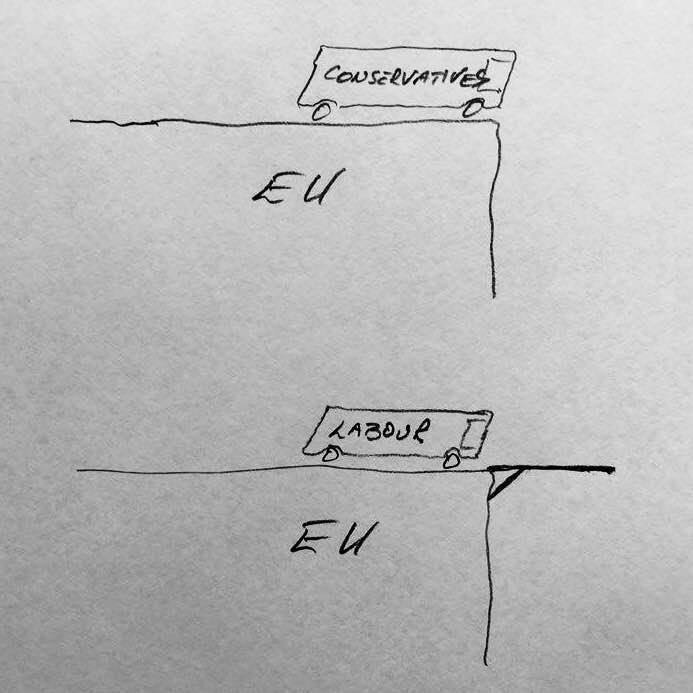 CONSERVATIVES
EU
LABOUR
EU